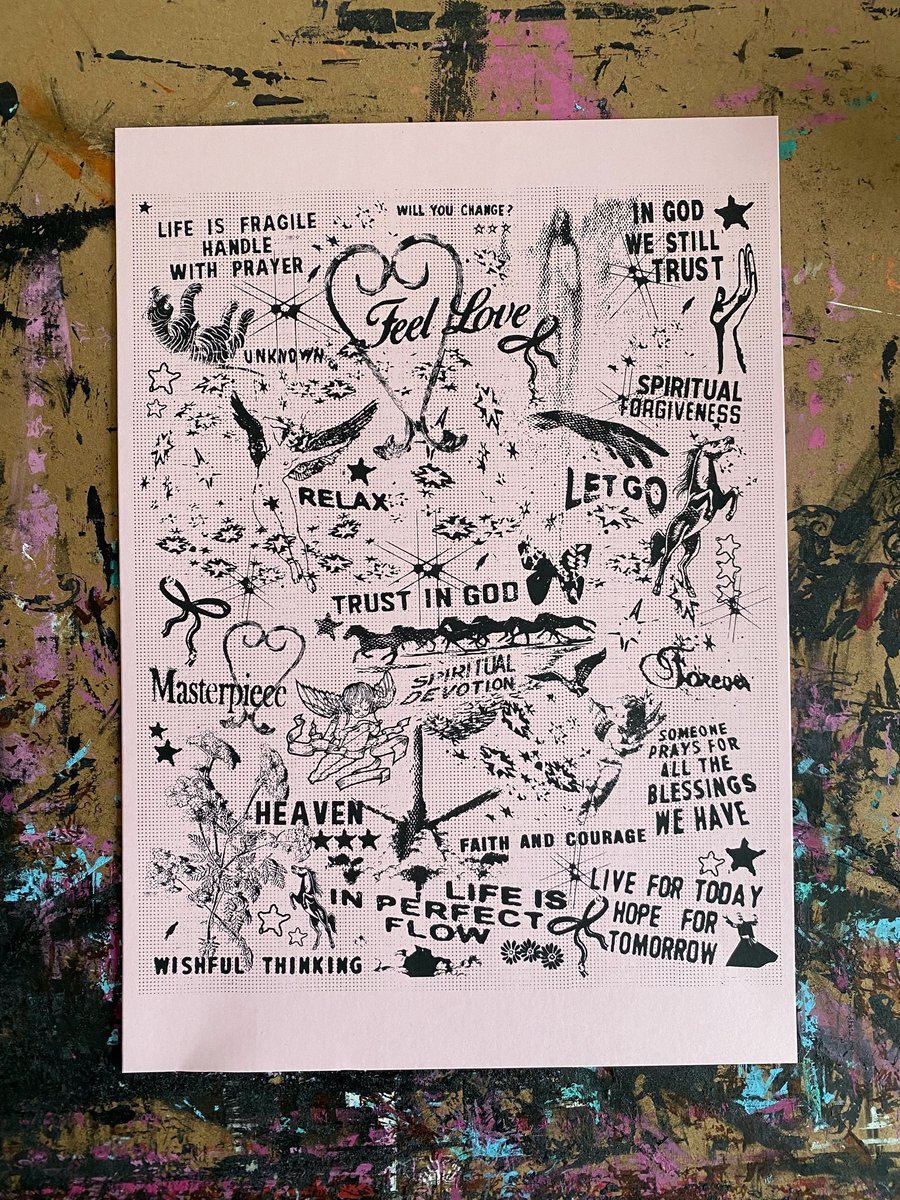 LIFE IS FRAGILE
HANDLE
WITH PRAYER
WILL YOU CHANGE?
IN GOD
WE STILL
TRUST
Feel Love
UNKNOWN
SPIRITUAL
FORGIVENESS
RELAX
LET GO
TRUST IN GOD
SPIRITUAL
DEVOTION
Masterpiece
Forever
SOMEONE
PRAYS FOR
ALL THE
BLESSINGS
WE HAVE
HEAVEN
FAITH AND COURAGE
LIFE IS
IN PERFECT
FLOW
LIVE FOR TODAY
HOPE FOR
TOMORROW
WISHFUL THINKING